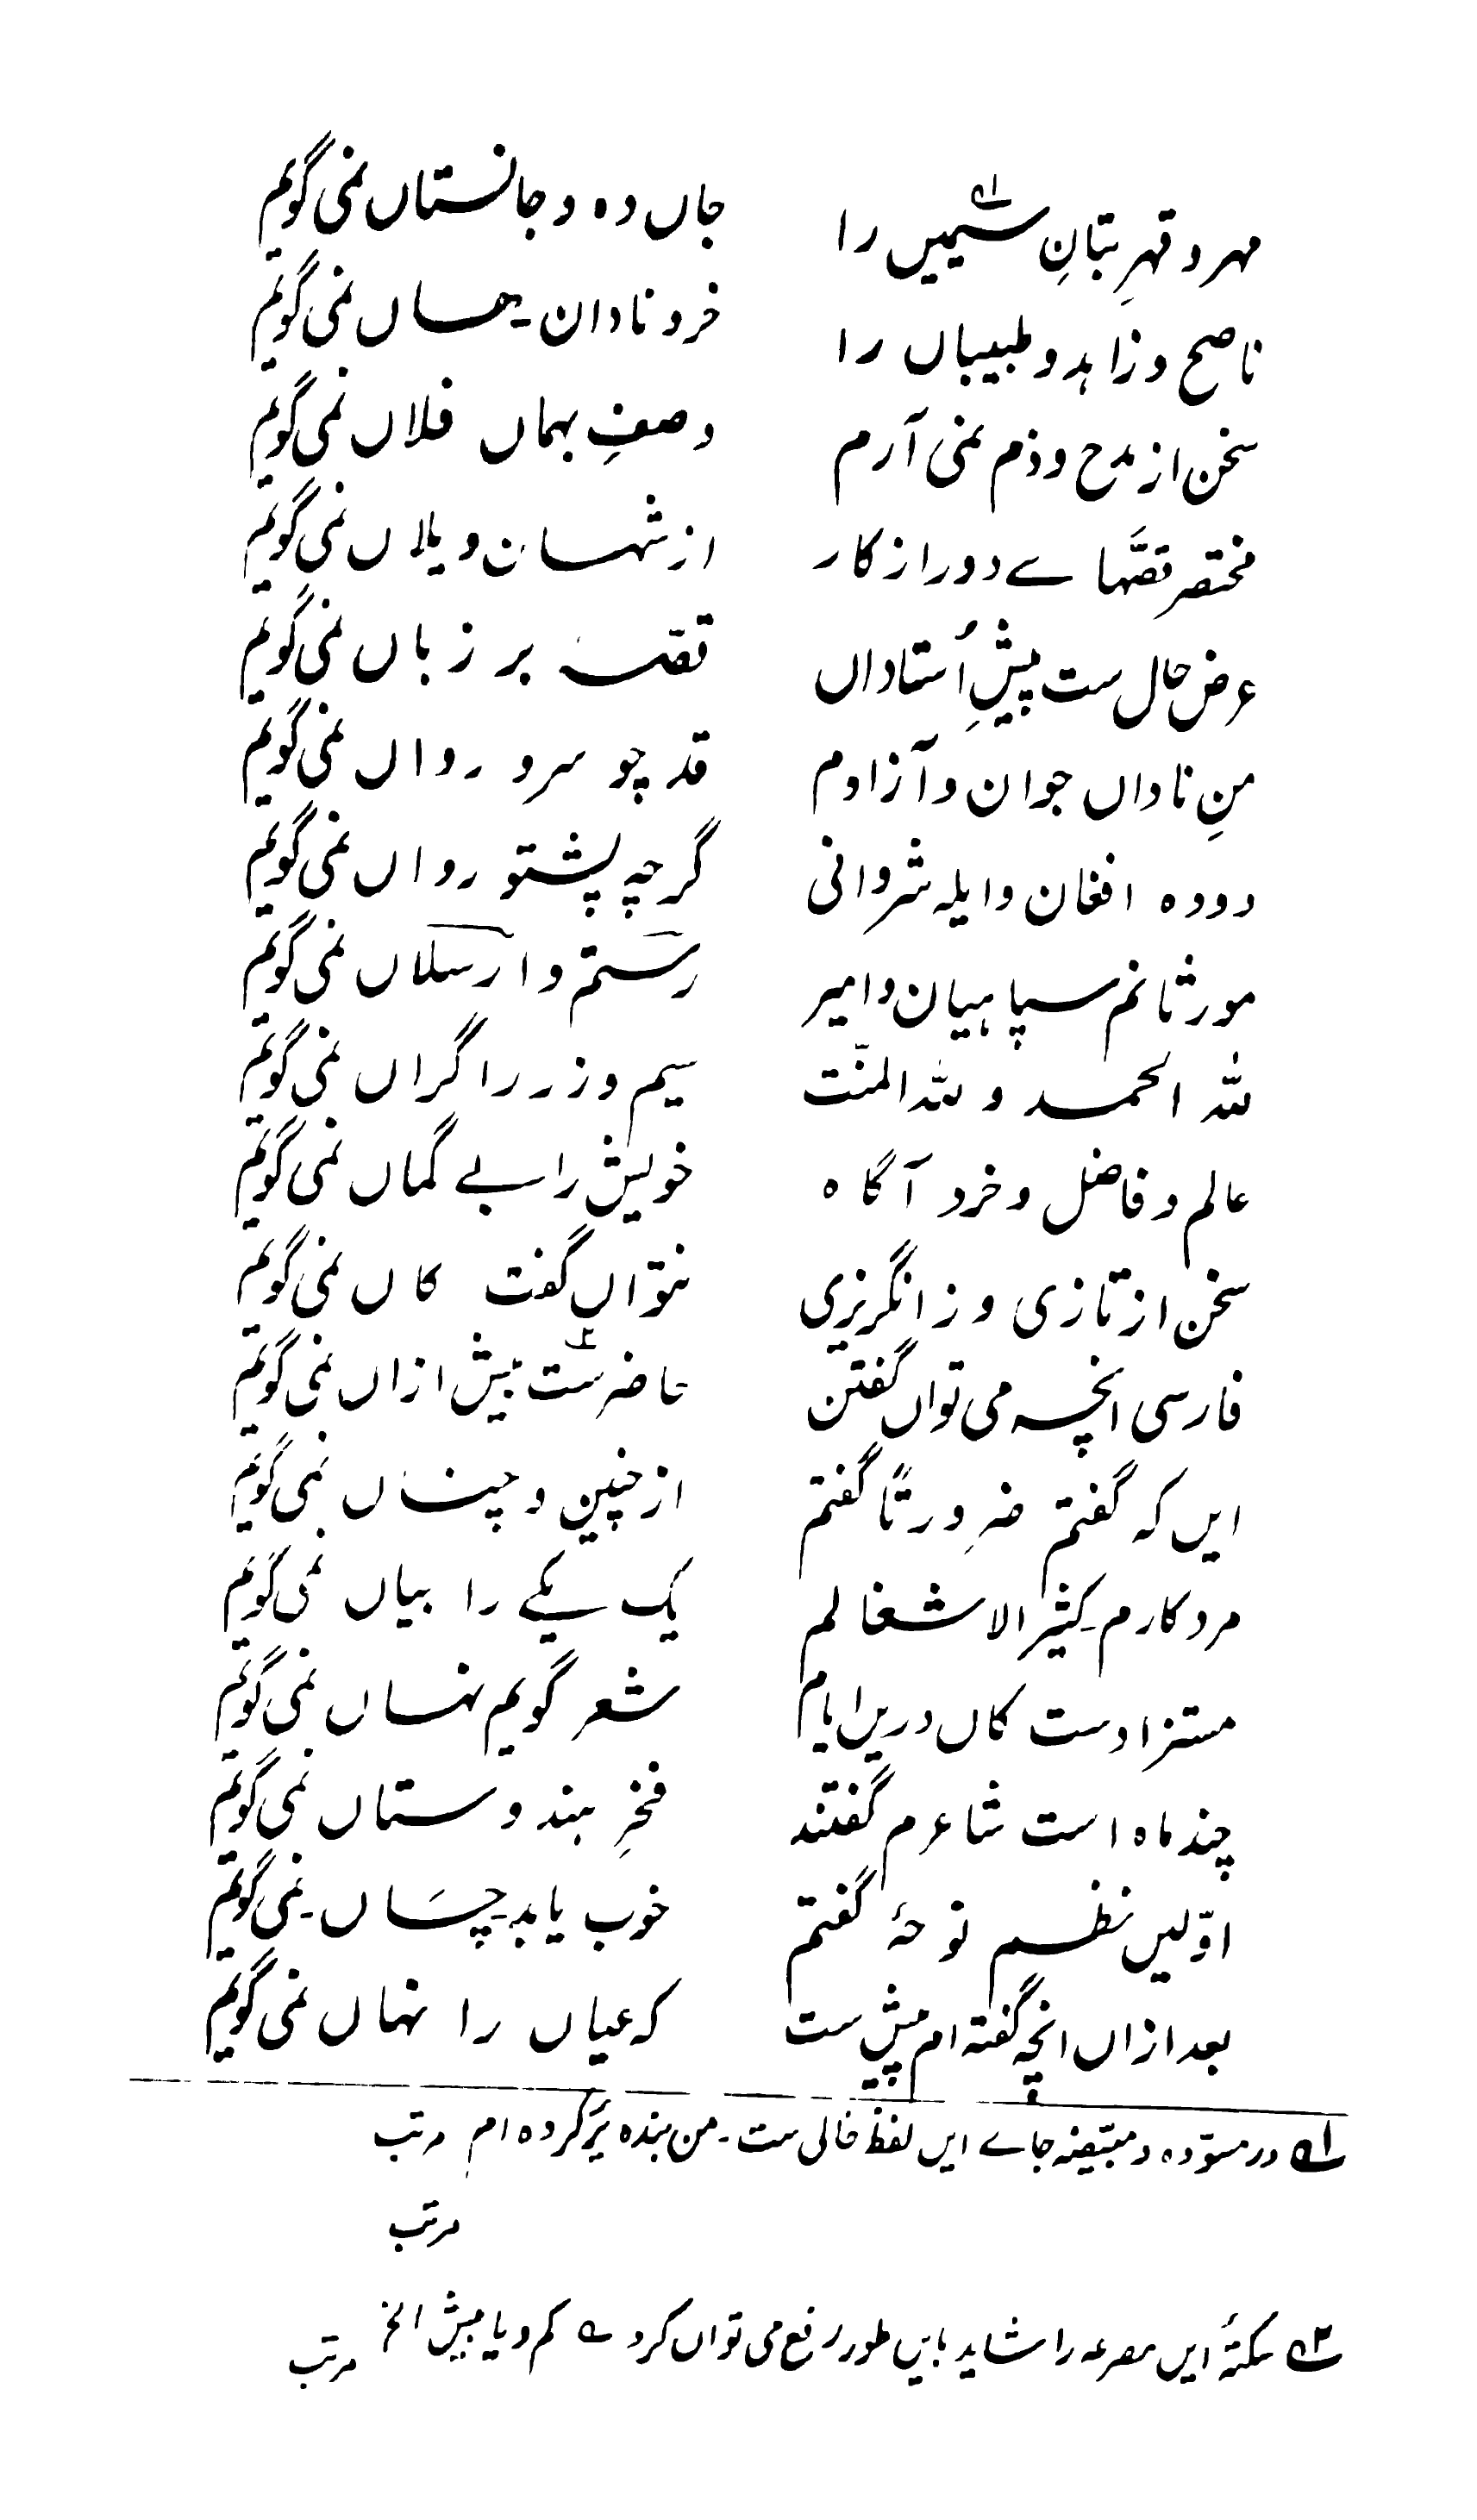 مهر و قهرِ بتانِ سیمیں را جاں ده و جانستاں نمی گویم
ناصح و زاہد و طبیباں را خر و نادان یہساں نمی گویم
سخن از مدح و ذم نمی آرم وصفِ بہماں فلاں نمی گویم
مختصر قصّہاے دور از کار از شہسان و یلاں نمی گویم
عرض حال ست پیشِ اُستاداں قصّہ بر زباں نمی گویم
منِ ناداں جوان و آزادم قد چو سرو رواں نمی گویم
دوده افغان و ایلہ شروانی گرچہ پشتو رواں نمی گویم
مورثانم سپاہیان و امیر رستم و ارسلاں نمی گویم
للہ الحمد و للہ المنّت سیم و زر را گراں نمی گویم
عالم و فاضل و خرد آگاه خویش را بے گماں نمی گویم
سخن از تازی و ز انگریزی نتواں گفت کاں نمی گویم
فارسی آنچہ می تواں گفتن حاضرست بیش ازاں نمی گویم
ایں کہ گفتم ضرورتاً گفتم از چنیں و چناں نمی گویم
مرد کارم کثیر الاشغالم یک یکے را بیاں نمی گویم
مستزادست کاں دریں ایام شعر گویم نہاں نمی گویم
چند ماه است شاعرم گفتند فخرِ ہندوستاں نمی گویم
اوّلیں نظم نوحۂ گفتم خوب یا بد چساں نمی گویم
بعد ازاں آنچہ گفتہ ام پیش ست کہ عیاں را نہاں نمی گویم
۱ در مسوّده و مبیّضہ جاے ایں لفظ خالی ست۔ من بنده پُر کرده ام مرتب
مرتب
۲ سکتۂ ایں مصرعہ را شاید بایں طور رفع می تواں کرد ؎ کم و یا بیش الخ مرتب